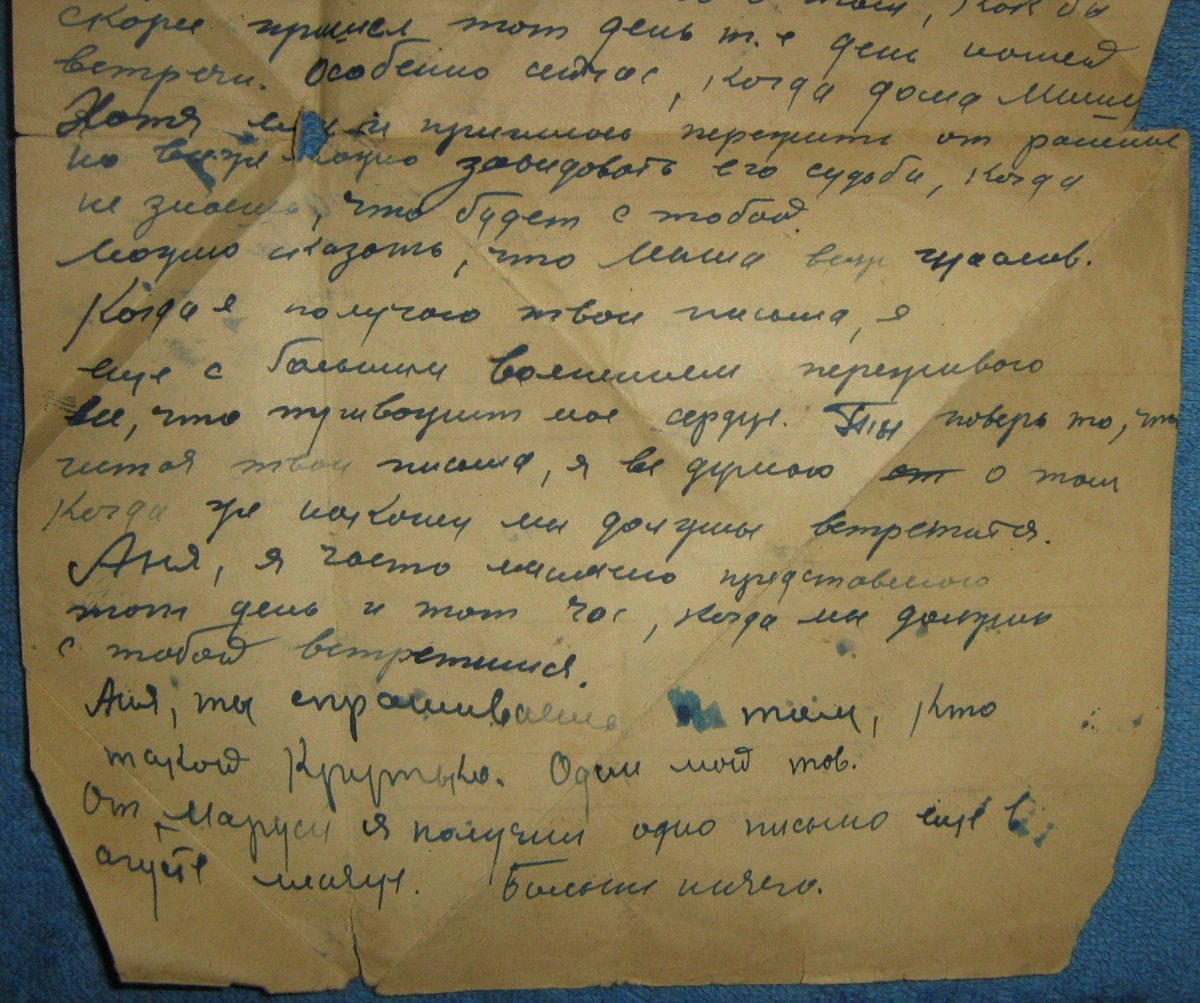 о том, как бы
скорее пришел тот день т.е день нашей
встречи. Особенно сейчас, когда дома Миша
Хотя и пришлось пережить от ранения
но все же можно завидовать его судьбе, когда
не знаешь, что будет с тобой.
Можно сказать, что Миша еще счастлив.
Когда я получаю твои письма, я
еще с большим волнением переживаю
все, что тревожит мое сердце. Ты поверь то, что
читая твои письма, я все думаю о том
Когда же наконец мы должны встретится.
Аня, я часто мысленно представляю
тот день и тот час, когда мы должны
с тобой встретится.
Аня, ты спрашиваешь о том, кто
такой Крутько. Один мой тов.
От Маруси я получил одно письмо еще в
агусте месяце. Больше ничего.